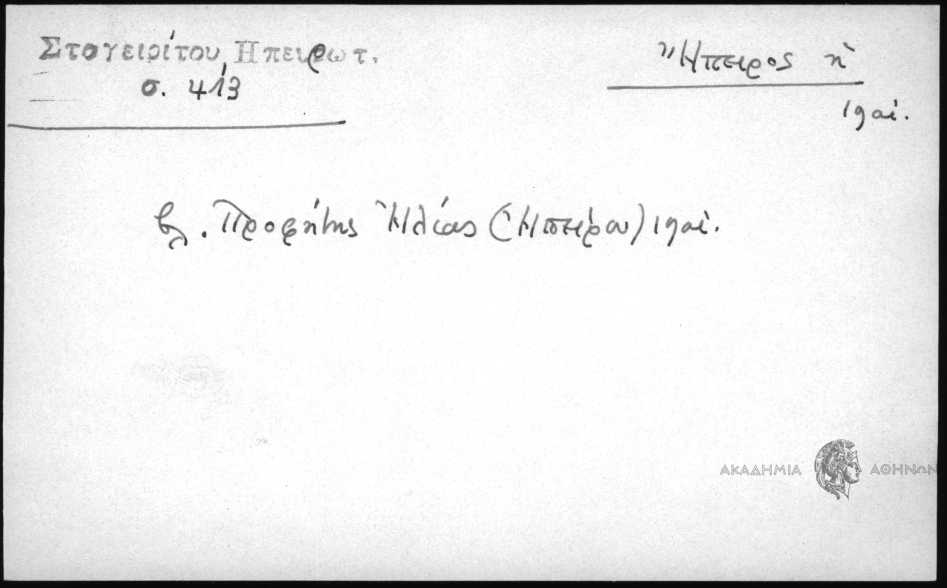 Σταγειρίτου Ηπειρωτ.
σ. 413
Ἤπειρος ἡ
1901.
βλ. Προφήτης Ἠλίας (Ἠπείρου) 1901.
ΑΚΑΔΗΜΙΑ ΑΘΗΝΩΝ